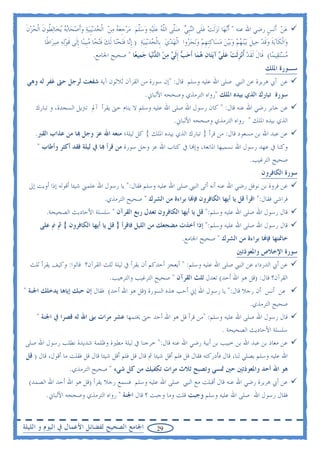 عَنْ أَنَسٍ رضي الله عنه "أَنَّهَا نَزَلَتْ عَلَى النَّبِيِّ صَلَّى اللَّهُ عَلَيْهِ وَسَلَّمَ مَرْجِعَهُ مِنْ الْحُدَيْبِيَةِ وَأَصْحَابُهُ يُخَالِطُونَ الْحُزْنَ
وَالْكَآبَةَ وَقَدْ حِيلَ بَيْنَهُمْ وَبَيْنَ مَسَاكِنِهِمْ وَنَحَرُوا الْهَدْيَ بِالْحُدَيْبِيَةِ { إِنَّا فَتَحْنَا لَكَ فَتْحًا مُبِينًا إِلَى قَوْلِهِ صِرَاطًا
مُسْتَقِيمًا } قَالَ لَقَدْ أُنْزِلَتْ عَلَيَّ آيَتَانِ هُمَا أَحَبُّ إِلَيَّ مِنْ الدُّنْيَا جَمِيعًا " صحيح الجامع.
سورة الملك
عن أبي هريرة عن النبي صلى الله عليه وسلم قال: "إن سورة من القرآن ثلاثون آية شفعت لرجل حتى غفر له وهي
سورة تبارك الذي بيده الملك " رواه الترمذي وصححه الألباني.
عن جابر رضي الله عنه قال: " كان رسول الله صلى الله عليه وسلم لا ينام حتى يقرأ ألم تنزيل السجدة، و تبارك
الذي بيده الملك " رواه الترمذي وصححه الألباني.
عن عبد الله بن مسعود قال: من قرأ { تبارك الذي بيده الملك } كل ليلة؛ منعه الله عز وجل بها من عذاب القبر.
وكنا في عهد رسول الله نسميها المانعة، وإنها في كتاب الله عز وجل سورة من قرأ بها في ليلة فقد أكثر وأطاب "
صحيح الترغيب.
سورة الكافرون
عن فروة بن نوفل رضي الله عنه أنه أتى النبي صلى الله عليه وسلم فقال:" يا رسول الله علمني شيئا أقوله إذا أويت إلى
فراشي فقال:" اقرأ قل يا أيها الكافرون فإنها براءة من الشرك " صحيح الترمذي.
قال رسول الله صلى الله عليه وسلم:" قل يا أيها الكافرون تعدل ربع القرآن " سلسلة الأحاديث الصحيحة.
قال رسول الله صلى الله عليه وسلم: "إذا أخذت مضجعك من الليل فاقرأ { قل يا أيها الكافرون } ثم نم على
خاتمتها فإنها براءة من الشرك " صحيح الجامع.
سورة الإخلاص والمعوذتين
عن أبي الدرداء عن النبي صلى الله عليه وسلم: " أيعجز أحدكم أن يقرأ في ليلة ثلث القرآن؟ قالوا: وكيف يقرأ ثلث
القرآن؟ قال: (قل هو الله أحد) تعدل ثلث القرآن " صحيح الترغيب والترهيب.
عن أنس أن رجلا قال:" يا رسول الله إني أحب هذه السورة (قل هو الله أحد) فقال إن حبك إياها يدخلك الجنة "
صحيح الترمذي.
قال رسول الله صلى الله عليه وسلم: "من قرأ قل هو الله أحد حتى يختمها عشر مرات بنى الله له قصرا في الجنة "
سلسلة الأحاديث الصحيحة .
عن معاذ بن عبد الله بن خبيب عن أبيه رضي الله عنه قال:"خرجنا في ليلة مطيرة وظلمة شديدة نطلب رسول الله صلى
الله عليه وسلم يصلي لنا، قال فأدركته فقال قل فلم أقل شيئا ثم قال قل فلم أقل شيئا قال قل فقلت ما أقول، قال ( قل
هو الله أحد والمعوذتين حين تمسي وتصبح ثلاث مرات تكفيك من كل شيء " صحيح الترمذي.
عن أبي هريرة رضي الله عنه قال أقبلت مع النبي صلى الله عليه وسلم فسمع رجلا يقرأ (قل هو الله أحد الله الصمد)
فقال رسول الله صلى الله عليه وسلم وجبت قلت وما وجبت ؟ قال الجنة " رواه الترمذي وصححه الألباني.
29 الجامع الصحيح لفضائل الأعمال في اليوم و الليلة